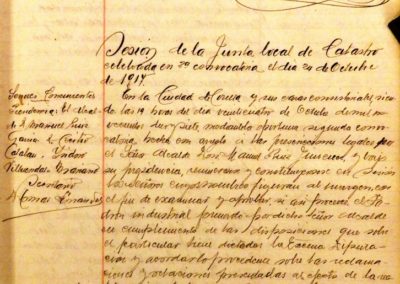 Sesion de la Junta local de Catastro
celebada en 2ª convocatoria el dia 24 de Octubre
de 1917
Señores Concurrentes
Presidencia: El Alcal
D. Manuel Ruiz
Garcia
Catalan
Secretario
En la Ciudad de Corella y sus casas consistoriales, sien
do las 19 horas del dia veinticuatro de Octubre de mil no
vecientos diez y siete, mediante oportuna segunda convo
catoria hecha con arreglo a las prescripciones legales por
el Señor Alcalde Don Manuel Ruiz y bajo
su presidencia, se reunieron y constituyeron en Sesion
los señores cuyos nombres figuran al margen con
el fin de examinar y aprobar, si asi procede el Pa
drón industrial formado por dicho Señor Alcalde
en cumplimiento de las disposiciones que sobre
el particular tiene dictadas la Excma Diputa
ción y acordar lo procedente sobre las reclama
ciones y presentadas al efecto de la